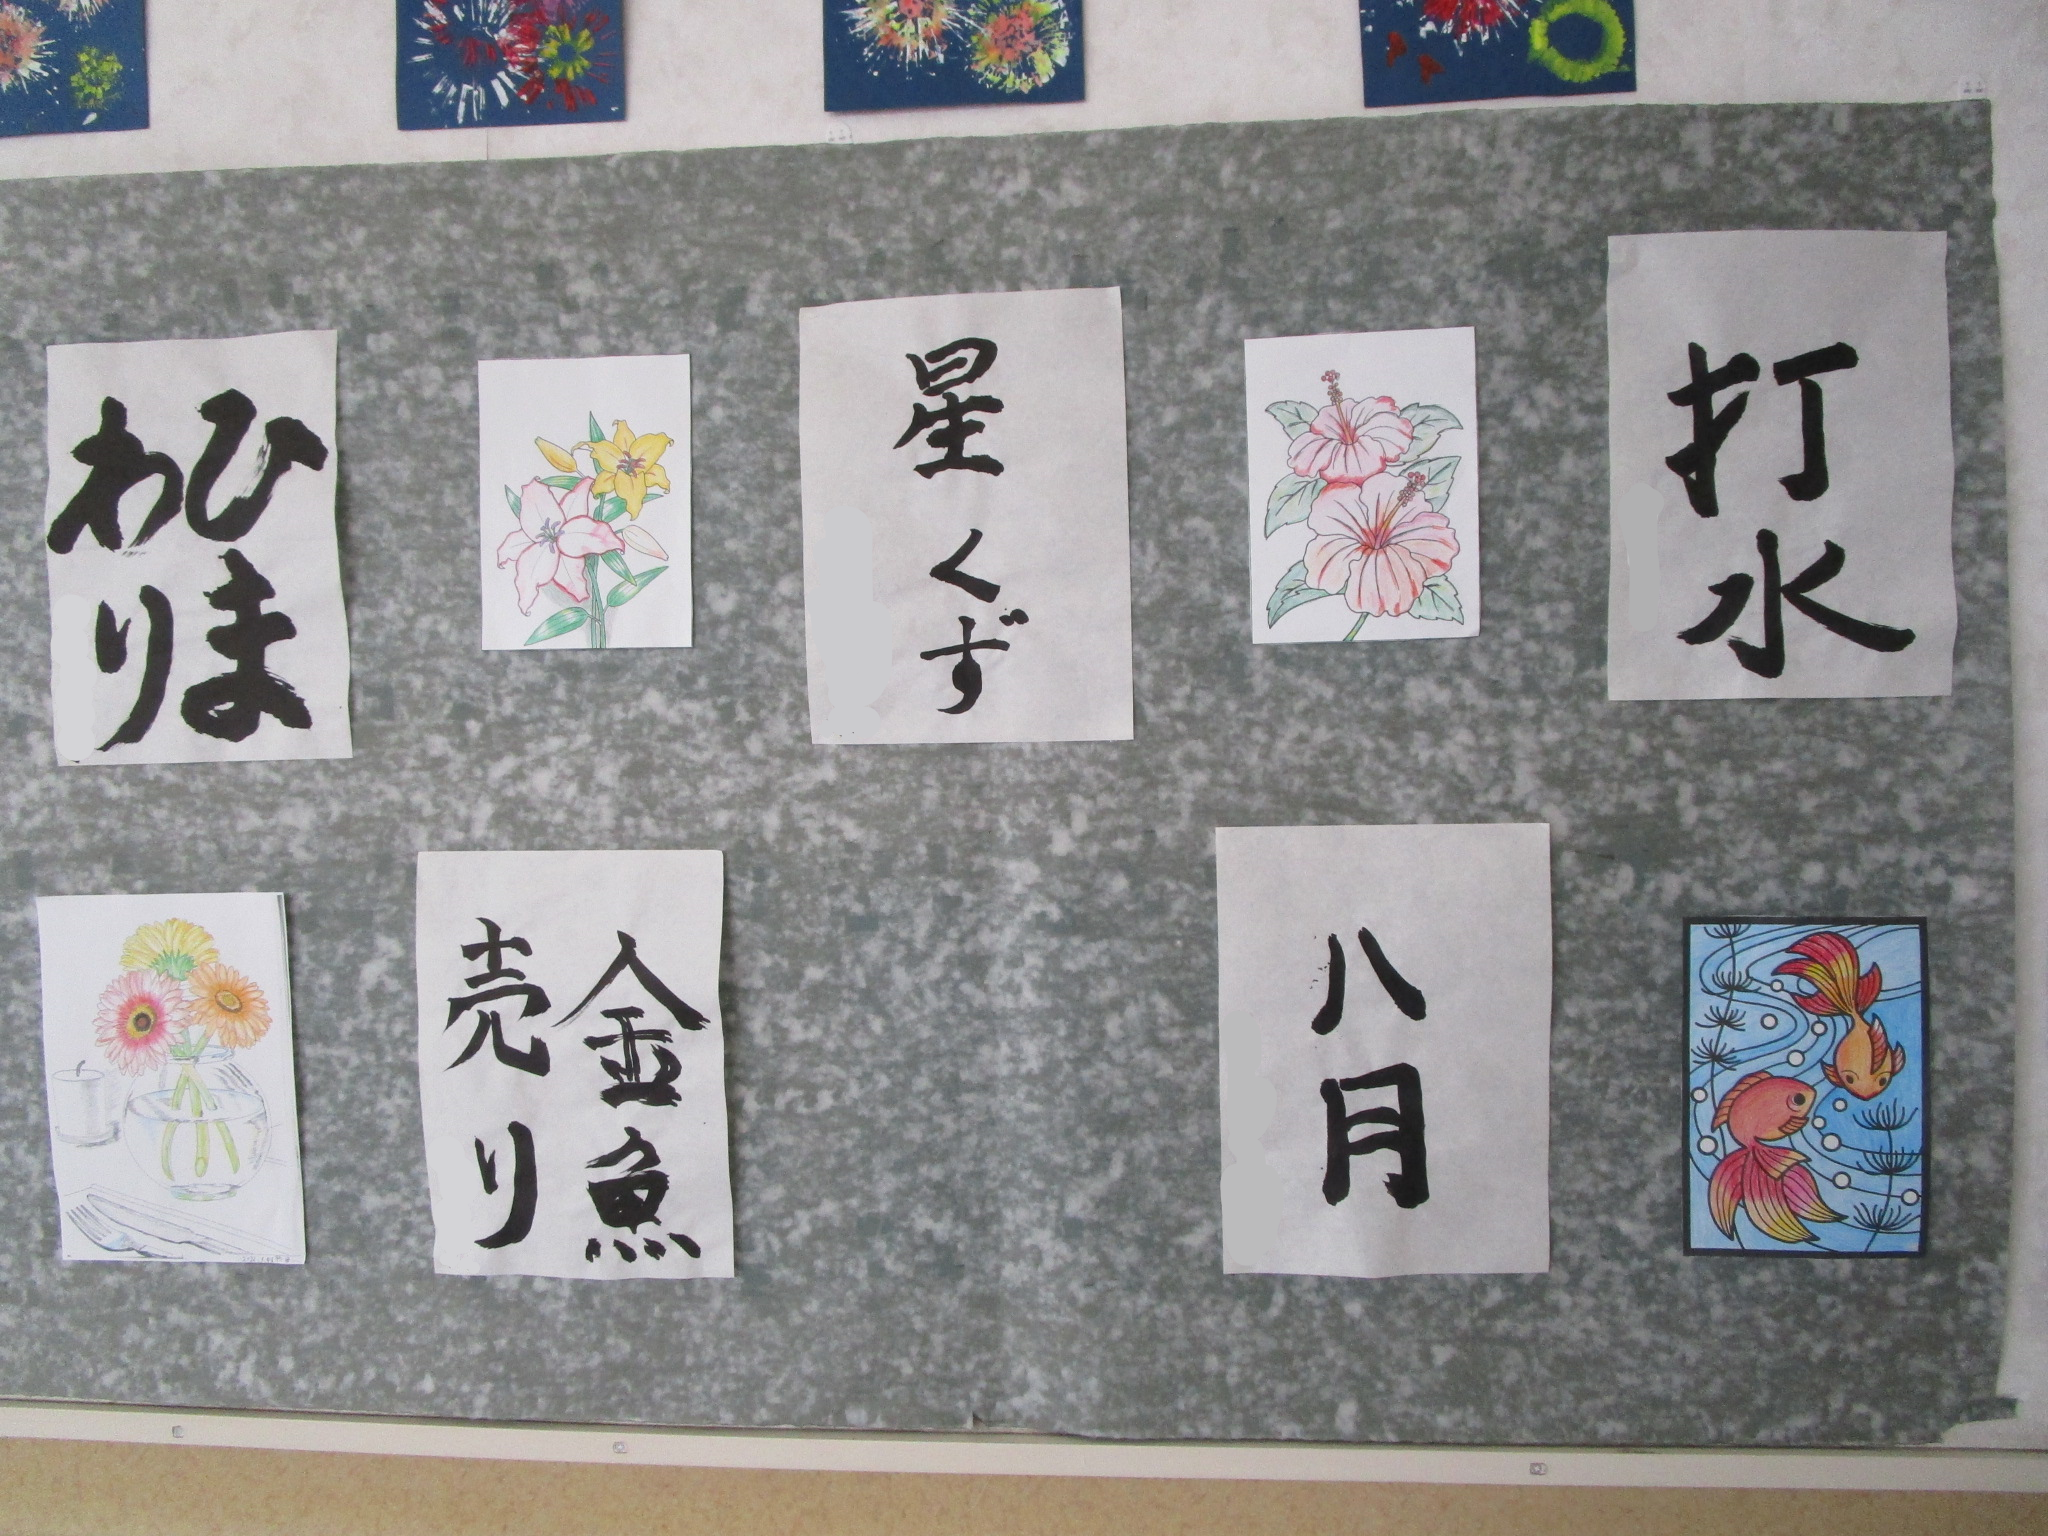 打水
星くず
ひま
わり
八月
金魚
売り